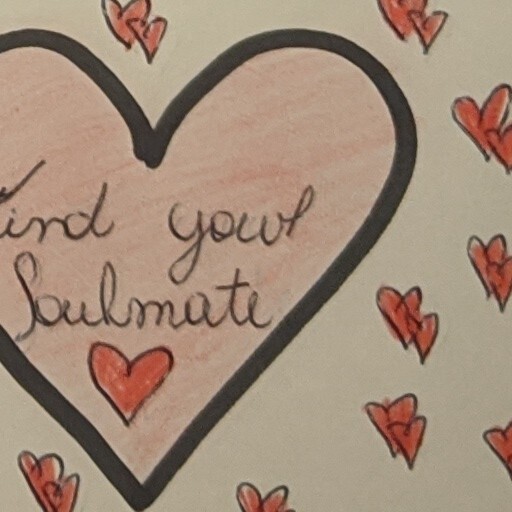 Find your
Soulmate